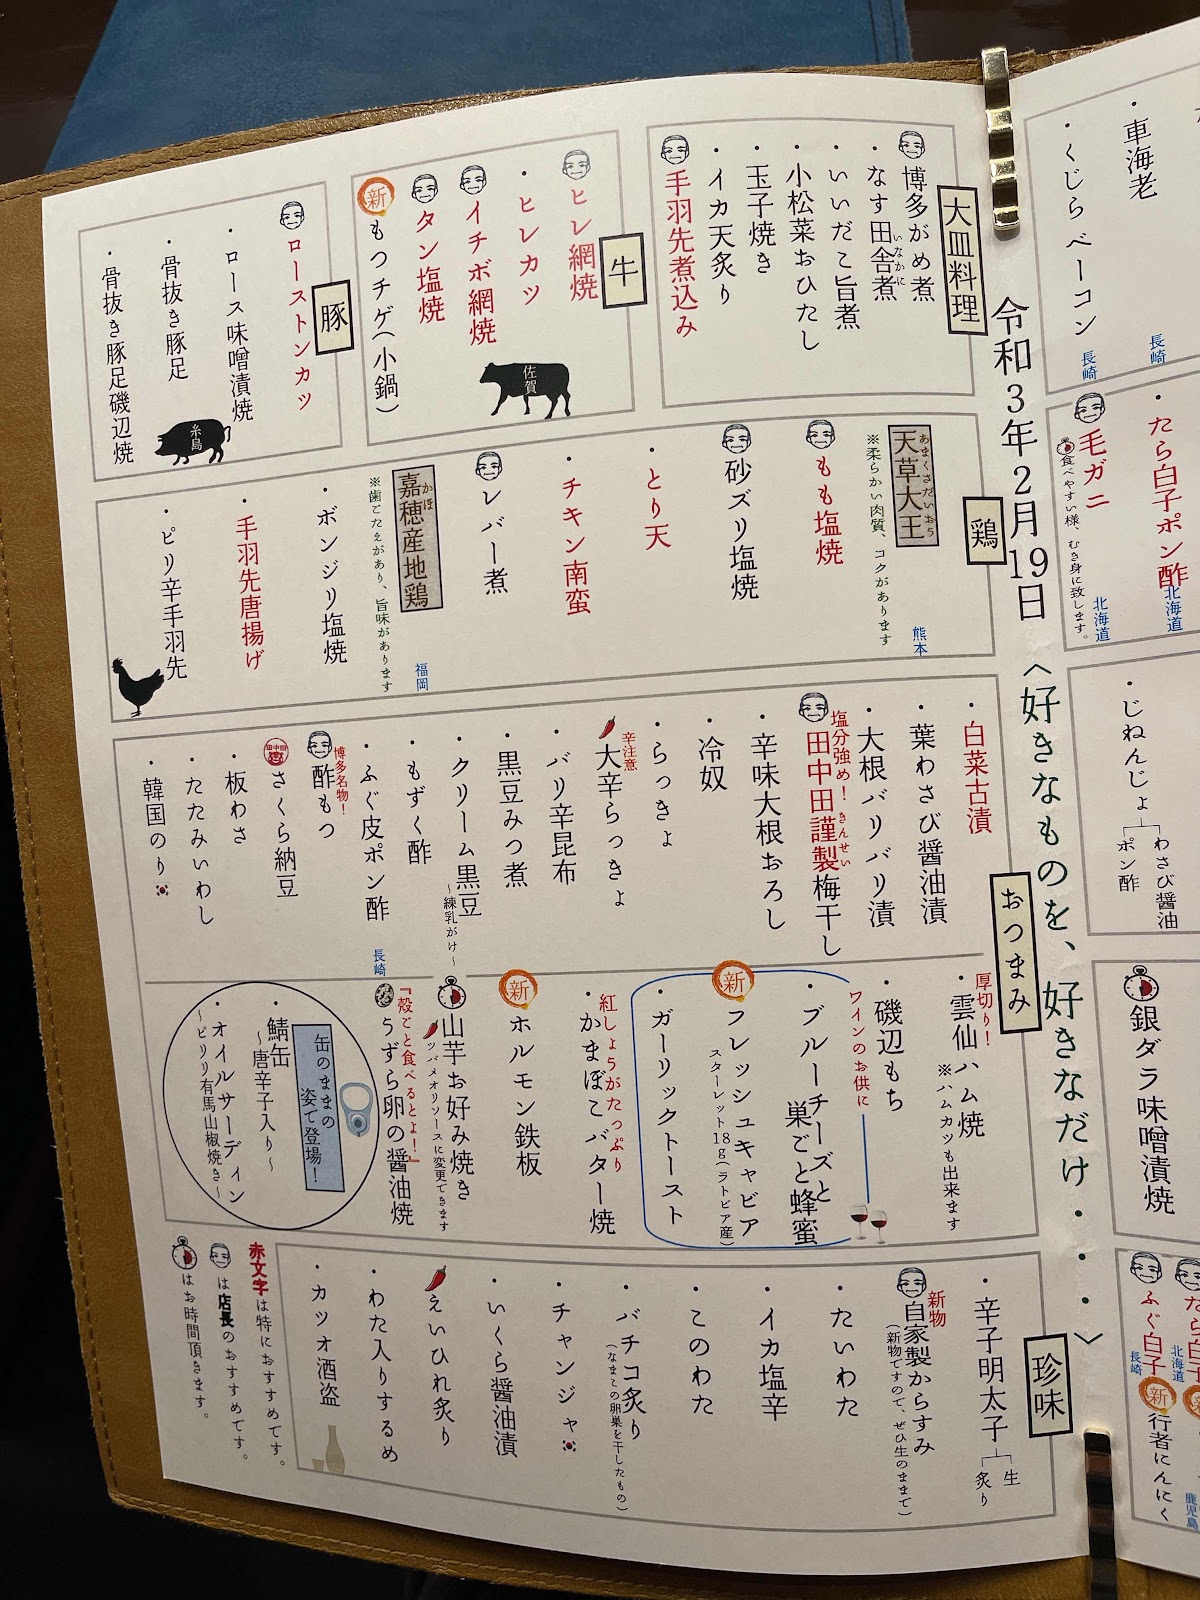 ・車海老
長崎
・くじらベーコン
長崎
・たら白子ポン酢
北海道
毛ガニ
食べやすい様、むき身に致します。
北海道
・じねんじょ
わさび醤油
ポン酢
銀ダラ味噌漬焼
たら白子
北海道
ふぐ白子
長崎
新
行者にんにく
鹿児島
令和3年2月19日
〈好きなものを、好きなだけ・・・〉
大皿料理
博多がめ煮
・なす田舎煮
いなかに
・いいだこ旨煮
・小松菜おひたし
・玉子焼き
・イカ天炙り
手羽先煮込み
牛
ヒレ網焼
・ヒレカツ
イチボ網焼
タン塩焼
新
もつチゲ(小鍋)
佐賀
豚
ローストンカツ
・ロース味噌漬焼
・骨抜き豚足
・骨抜き豚足磯辺焼
糸島
鶏
天草大王
あまくさだいおう
※柔らかい肉質、コクがあります
熊本
もも塩焼
砂ズリ塩焼
・とり天
・チキン南蛮
レバー煮
嘉穂産地鶏
かほ
※歯ごたえがあり、旨味があります
福岡
・ボンジリ塩焼
・手羽先唐揚げ
・ピリ辛手羽先
おつまみ
・白菜古漬
・葉わさび醤油漬
・大根バリバリ漬
塩分強め!
田中田謹製梅干し
きんせい
・辛味大根おろし
・冷奴
・らっきょ
辛注意
大辛らっきょ
・バリ辛昆布
・黒豆みつ煮
・クリーム黒豆
~練乳がけ~
・もずく酢
・ふぐ皮ポン酢
長崎
博多名物!
酢もつ
田中田
さくら納豆
・板わさ
・たたみいわし
・韓国のり
厚切り!
・雲仙ハム焼
※ハムカツも出来ます
・磯辺もち
ワインのお供に
・ブルーチーズと
巣ごと蜂蜜
新
フレッシュキャビア
スターレット18g(ラトビア産)
・ガーリックトースト
紅しょうがたっぷり
・かまぼこバター焼
新
ホルモン鉄板
山芋お好み焼き
ツバメオリソースに変更できます
『殻ごと食べるとよ!』
うずら卵の醤油焼
缶のままの
姿で登場!
・鯖缶
~唐辛子入り~
・オイルサーディン
~ピリリ有馬山椒焼き~
珍味
・辛子明太子
生
炙り
新物
自家製からすみ
(新物ですので、ぜひ生のままで)
・たいわた
・イカ塩辛
・このわた
・バチコ炙り
(なまこの卵巣を干したもの)
・チャンジャ
・いくら醤油漬
えいひれ炙り
・わた入りするめ
・カツオ酒盗
赤文字は特におすすめです。
は店長のおすすめです。
はお時間頂きます。